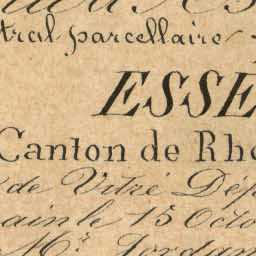 tral parcellaire
ESSÉ
Canton de Rh
de Vitré Dép
le 15 Octo
Mr. Jordan